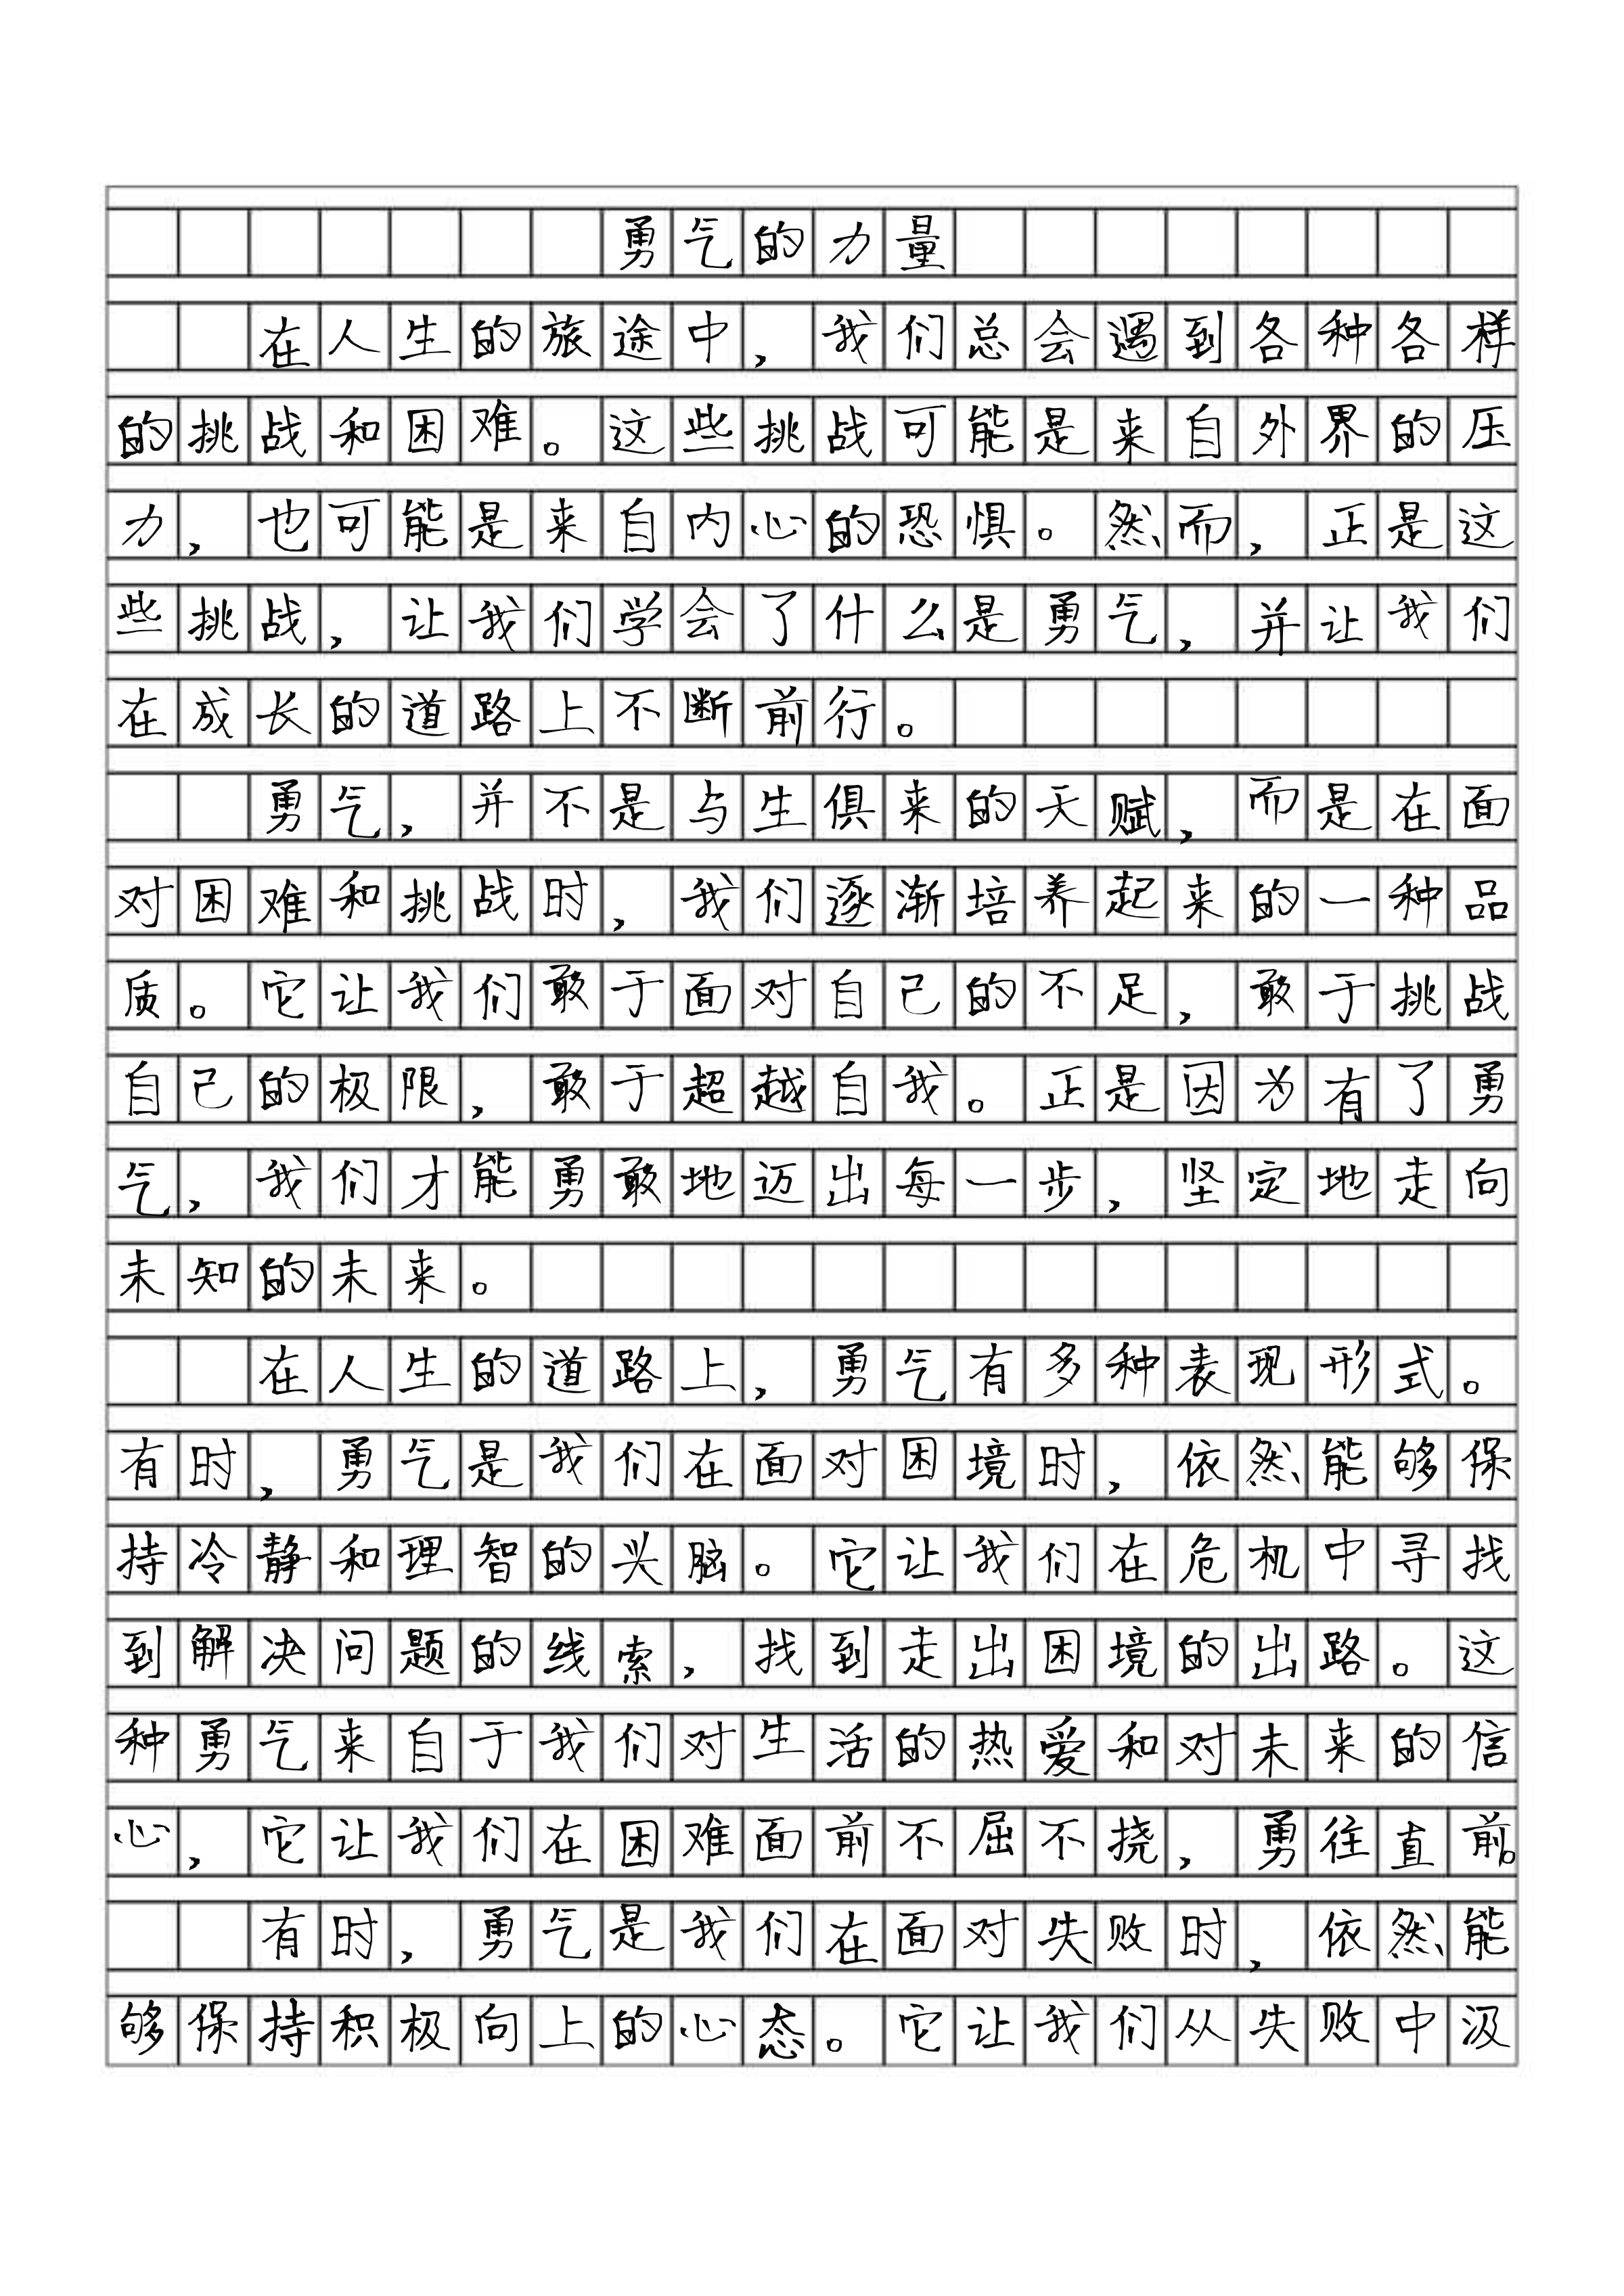 勇气的力量
在人生的旅途中，我们总会遇到各种各样
的挑战和困难。这些挑战可能是来自外界的压
力，也可能是来自内心的恐惧。然而，正是这
些挑战，让我们学会了什么是勇气，并让我们
在成长的道路上不断前行。
勇气，并不是与生俱来的天赋，而是在面
对困难和挑战时，我们逐渐培养起来的一种品
质。它让我们敢于面对自己的不足，敢于挑战
自己的极限，敢于超越自我。正是因为有了勇
气，我们才能勇敢地迈出每一步，坚定地走向
未知的未来。
在人生的道路上，勇气有多种表现形式。
有时，勇气是我们在面对困境时，依然能够保
持冷静和理智的头脑。它让我们在危机中寻找
到解决问题的线索，找到走出困境的出路。这
种勇气来自于我们对生活的热爱和对未来的信
心，它让我们在困难面前不屈不挠，勇往直前。
有时，勇气是我们在面对失败时，依然能
够保持积极向上的心态。它让我们从失败中汲